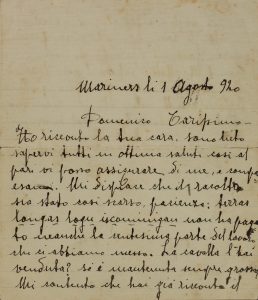 Mariners li 1 Agosto 920
Domenico Carissimo
Ho ricevuto la tua cara, sono lieto
sapervi tutti in ottima saluti cosi al
pari vi posso assicurare di me, e
Mi dispiace che il raccolto
sia stato cosi scarso, pazienza; terras
longas
to neanche la sentesima parte del lavoro
che ci abbiamo messo. La cavalla l'hai
venduta? sé è mantenuta sempre grossa
Mi contento che hai gia ricevuto il